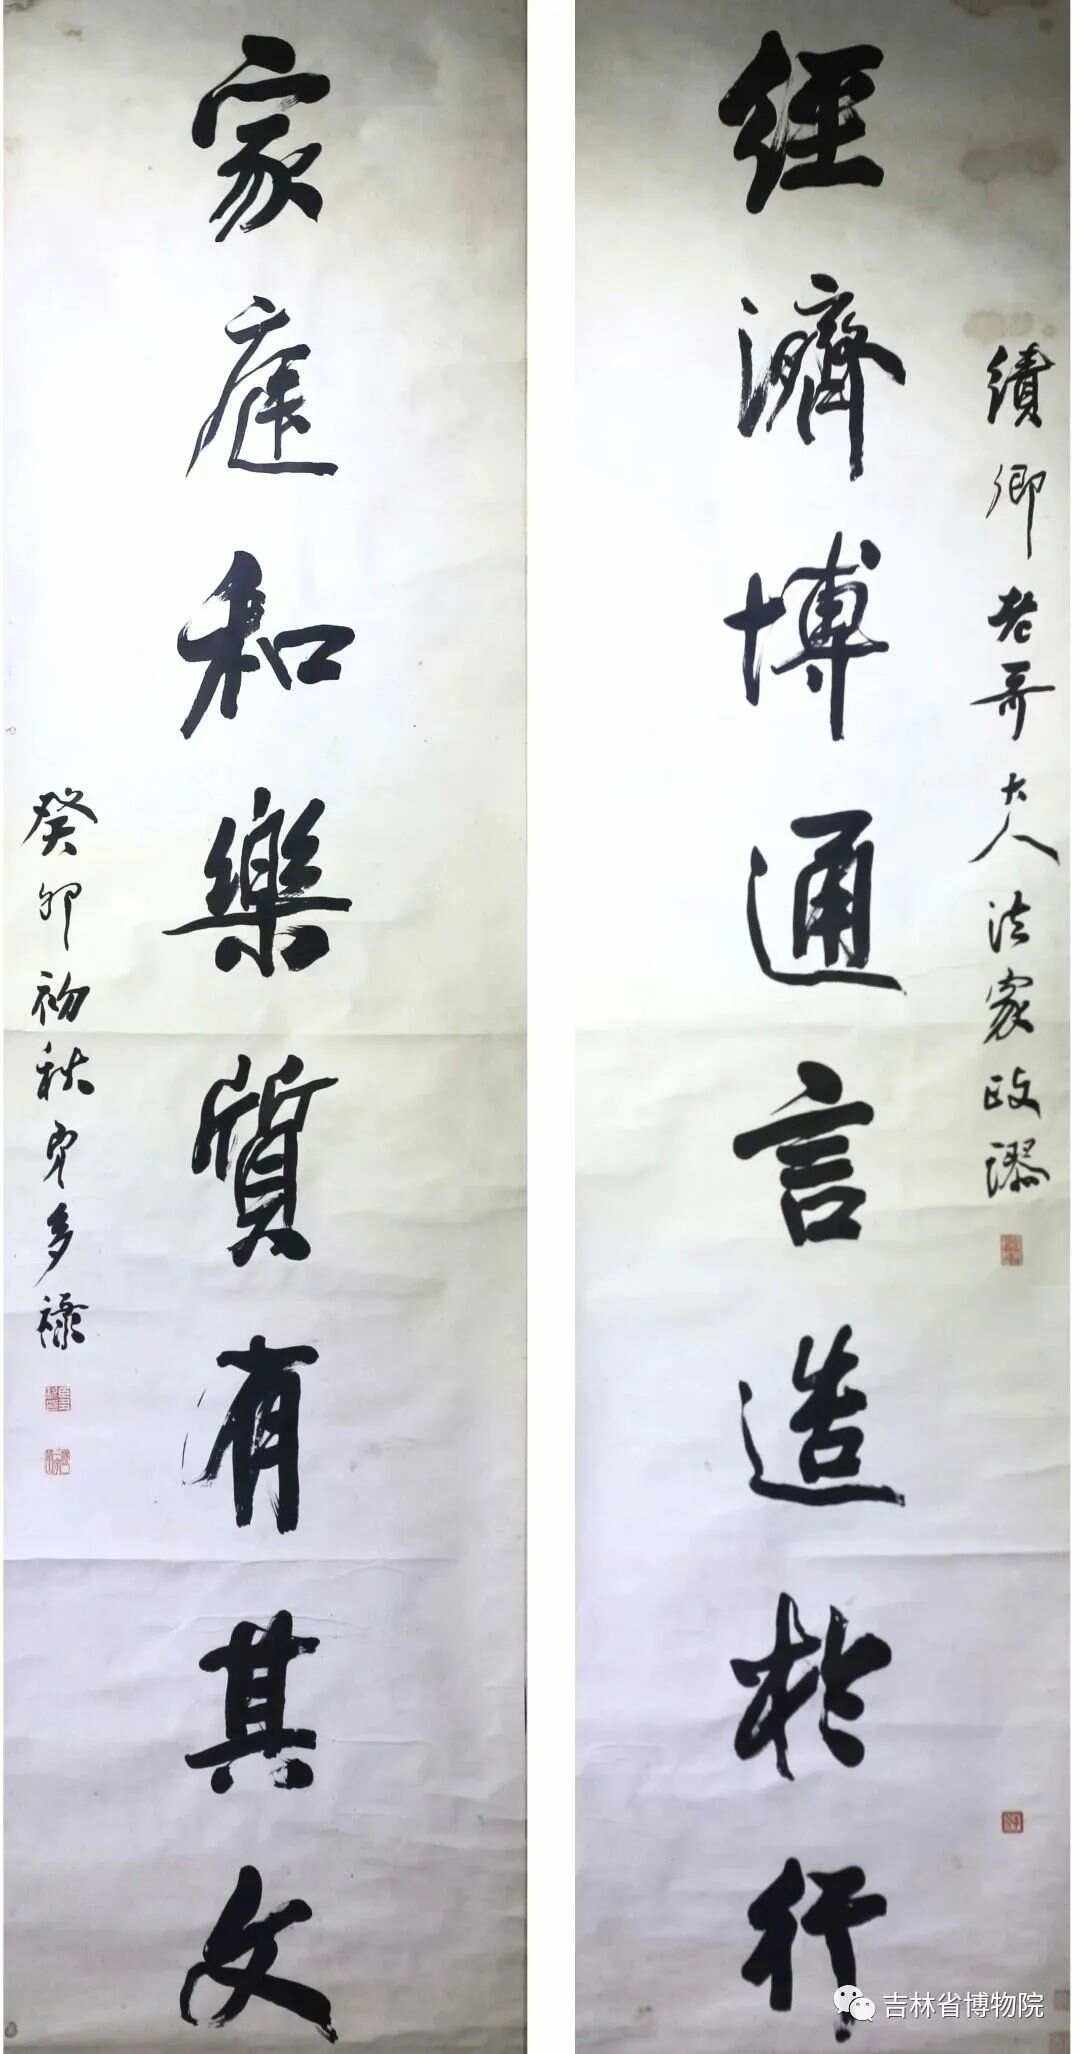 績卿老哥大人法家政謬
經濟博通言造於行
家庭和樂質有其文
癸卯初秋成多祿
吉林省博物院